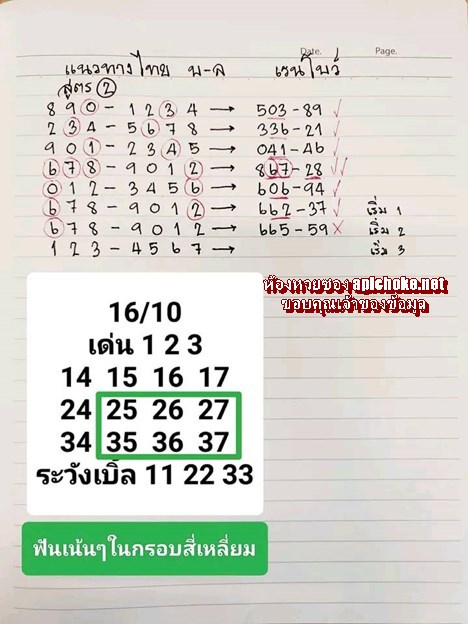 Date. Page.
แนวทางไทย บ-ล เรนโบว์
สูตร 2
8 9 0 - 1 2 3 4 → 503-89 ✓
2 3 4 - 5 6 7 8 → 336-21 ✓
9 0 1 - 2 3 4 5 → 041-46 ✓
6 7 8 - 9 0 1 2 → 867-28 ✓✓
0 1 2 - 3 4 5 6 → 606-94 ✓
6 7 8 - 9 0 1 2 → 662-37 ✓ เริ่ม 1
6 7 8 - 9 0 1 2 → 665-59 × เริ่ม 2
1 2 3 - 4 5 6 7 → เริ่ม 3
ห้องหวยซอง apichoke.net
ขอบคุณเจ้าของข้อมูล
16/10
เด่น 1 2 3
14 15 16 17
24 25 26 27
34 35 36 37
ระวังเบิ้ล 11 22 33
ฟันเน้นๆในกรอบสี่เหลี่ยม